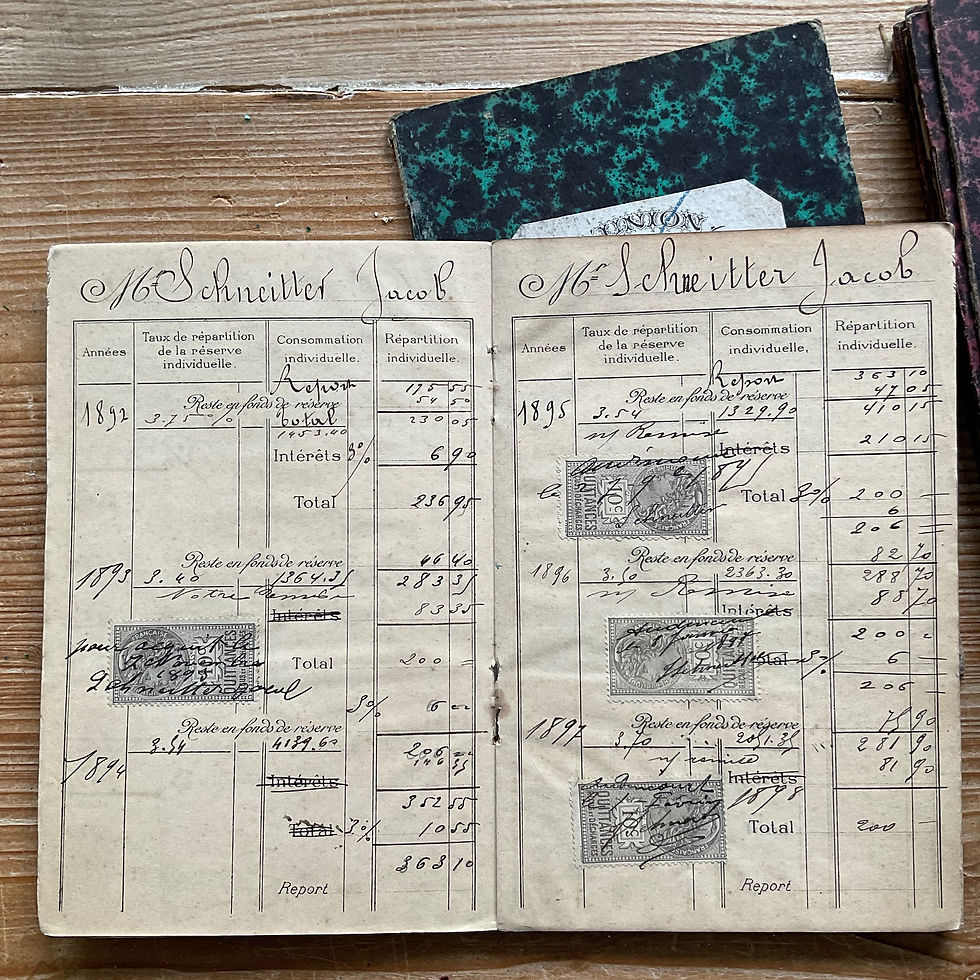 UNION
Mr Schneitter Jacob
Années
Taux de répartition de la réserve individuelle.
Consommation individuelle.
Répartition individuelle.
Report 175 55
Reste en fonds de réserve 54 50
1892 3.75 % Total 230 05
1453.40
Intérêts 3% 6 90
Total 236 95
Reste en fonds de réserve 46 40
1893 3.40 1364.25 283 35
Notre Remise 83 35
Intérêts
pour acquit le
1893
Total 200 =
3% 6 =
Reste en fonds de réserve
3.54 4139.60 206 =
1894 146 35
Intérêts
352 55
Total 3% 10 55
363 10
Report
Mr Schneitter Jacob
Années
Taux de répartition de la réserve individuelle.
Consommation individuelle,
Répartition individuelle.
Report 363 10
Reste en fonds de réserve 47 05
1895 3.54 1329.90 410 15
n/ Remise 210 15
Intérêts
QUITTANCES
Total 3% 200 —
6
206 =
Reste en fonds de réserve 82 70
1896 3.50 2363.30 288 70
n/ Remise 88 70
Intérêts
200 =
Total 3% 6 =
206 =
Reste en fonds de réserve 75 90
1897 281 90
n/ remise 81 90
Intérêts
1898
QUITTANCES
Total 200 —
Report